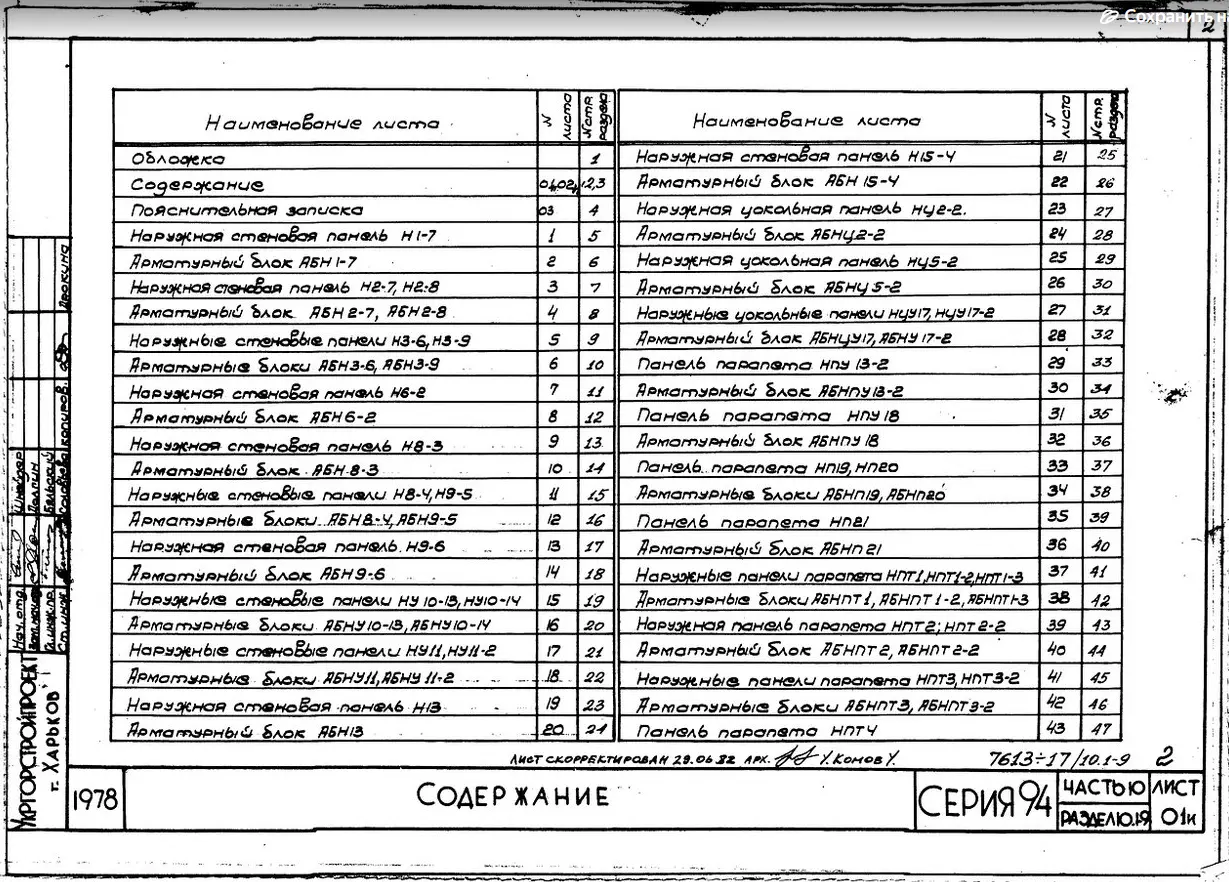 Сохранить н
2
Наименование листа N листа N стр. раздела
Обложка 1
Содержание 01,02 2,3
Пояснительная записка 03 4
Наружная стеновая панель Н1-7 1 5
Арматурный блок АБН1-7 2 6
Наружная стеновая панель Н2-7, Н2-8 3 7
Арматурный блок АБН2-7, АБН2-8 4 8
Наружные стеновые панели Н3-6, Н3-9 5 9
Арматурные блоки АБН3-6, АБН3-9 6 10
Наружная стеновая панель Н6-2 7 11
Арматурный блок АБН6-2 8 12
Наружная стеновая панель Н8-3 9 13
Арматурный блок АБН.8-3 10 14
Наружные стеновые панели Н8-4, Н9-5 11 15
Арматурные блоки АБН8-4, АБН9-5 12 16
Наружная стеновая панель Н9-6 13 17
Арматурный блок АБН9-6 14 18
Наружные стеновые панели НУ10-13, НУ10-14 15 19
Арматурные блоки АБНУ10-13, АБНУ10-14 16 20
Наружные стеновые панели НУ11, НУ11-2 17 21
Арматурные блоки АБНУ11, АБНУ11-2 18 22
Наружная стеновая панель Н13 19 23
Арматурный блок АБН13 20 24
Наименование листа N листа N стр. раздела
Наружная стеновая панель Н15-4 21 25
Арматурный блок АБН15-4 22 26
Наружная цокольная панель НЦ2-2. 23 27
Арматурный блок АБНЦ2-2 24 28
Наружная цокольная панель НЦ5-2 25 29
Арматурный блок АБНЦ5-2 26 30
Наружные цокольные панели НЦУ17, НЦУ17-2 27 31
Арматурный блок АБНЦУ17, АБНУ17-2 28 32
Панель парапета НПУ13-2 29 33
Арматурный блок АБНПУ13-2 30 34
Панель парапета НПУ18 31 35
Арматурный блок АБНПУ18 32 36
Панель парапета НП19, НП20 33 37
Арматурные блоки АБНП19, АБНП20 34 38
Панель парапета НП21 35 39
Арматурный блок АБНП21 36 40
Наружные панели парапета НПТ1, НПТ1-2, НПТ1-3 37 41
Арматурные блоки АБНПТ1, АБНПТ1-2, АБНПТ1-3 38 42
Наружная панель парапета НПТ2; НПТ2-2 39 43
Арматурный блок АБНПТ2, АБНПТ2-2 40 44
Наружные панели парапета НПТ3, НПТ3-2 41 45
Арматурные блоки АБНПТ3, АБНПТ3-2 42 46
Панель парапета НПТ4 43 47
Лист скорректирован 29.06.82 арх. У.Комов У.
7613÷17/10.1-9 2
1978
СОДЕРЖАНИЕ
СЕРИЯ 94
ЧАСТЬ Ю
РАЗДЕЛ 10.1-9
ЛИСТ
01и
УКРГОРСТРОЙПРОЕКТ
г. ХАРЬКОВ
Нач. отд. Шнейдер
Гл.инж.пр. Бельский
Ст.инж. Соловьева
Копиров.